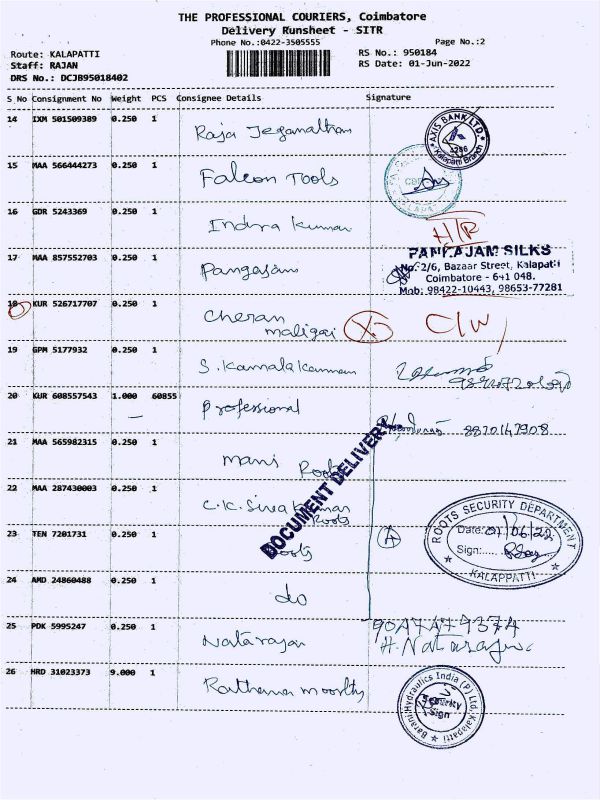 THE PROFESSIONAL COURIERS, Coimbatore
Delivery Runsheet - SITR
Phone No.:0422-3505555 Page No.:2
Route: KALAPATTI RS No.: 950184
Staff: RAJAN RS Date: 01-Jun-2022
DRS No.: DCJB95018402
S_No Consignment No Weight PCS Consignee Details Signature
14 IXM 501509389 0.250 1
Raja Jeganathan
AXIS BANK LTD.
Kalapatti Branch
15 MAA 566444273 0.250 1
Falcon Tools
16 GDR 5243369 0.250 1
Indra Kumar
H/R
17 MAA 857552703 0.250 1
Pangajam
PANKAJAM SILKS
No. 2/6, Bazaar Street, Kalapatti
Coimbatore - 641 048.
Mob: 98422-10443, 98653-77281
18 KUR 526717707 0.250 1
Cheran
maligai
C/W
19 GPM 5177932 0.250 1
S. Kamalakannan
20 KUR 608557543 1.000 60855
Professional
8870147908
21 MAA 565982315 0.250 1
mani Roots
DOCUMENT DELIVERY
22 MAA 287430003 0.250 1
C.K. Sivakumar
Roots
23 TEN 7201731 0.250 1
Roots
A
ROOTS SECURITY DEPARTMENT
Date: 01/06/22
Sign:......
KALAPPATTI
24 AMD 24860488 0.250 1
do
25 PDK 5995247 0.250 1
Natarajan
H. Natarajan
26 HRD 31023373 9.000 1
Rathana moorthy
Barani Hydraulics India (P) Ltd. Kalapatti
Security
Sign